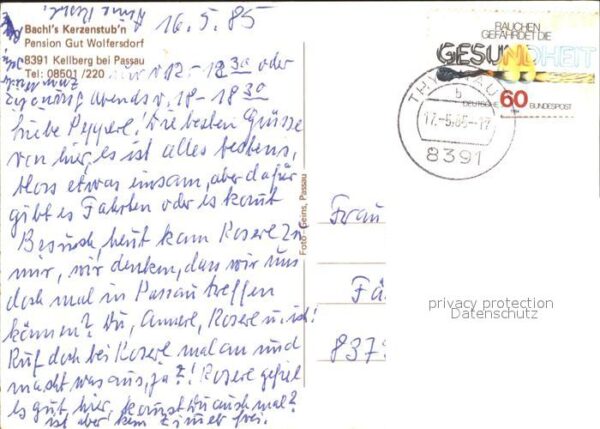 16.5.85
Bachl's Kerzenstub'n
Pension Gut Wolfersdorf
8391 Kellberg bei Passau
Tel: 08501/220
v 12 - 12 30 oder
abends v. 18 - 18 30
Liebe Pepperl! Die besten Grüsse
von hier, es ist alles bestens,
bloss etwas einsam, aber dafür
gibt es Fahrten oder es komt
Besuch, heut kam Roserl zu
mir, wir denken, dass wir uns
doch mal in Passau treffen
können? Du, Annerl, Roserl u. ich!
Ruf doch bei Roserl mal an und
macht was aus, ja?! Roserl gefiel
es gut, hier, komst Du auch mal?
ist aber kein Zimer frei.
Foto-Geins, Passau
RAUCHEN
GEFÄHRDET DIE
GESUNDHEIT
DEUTSCHE 60 BUNDESPOST
THYRNAU
b
17.-5.85-17
8391
Frau
Fä
837
privacy protection
Datenschutz